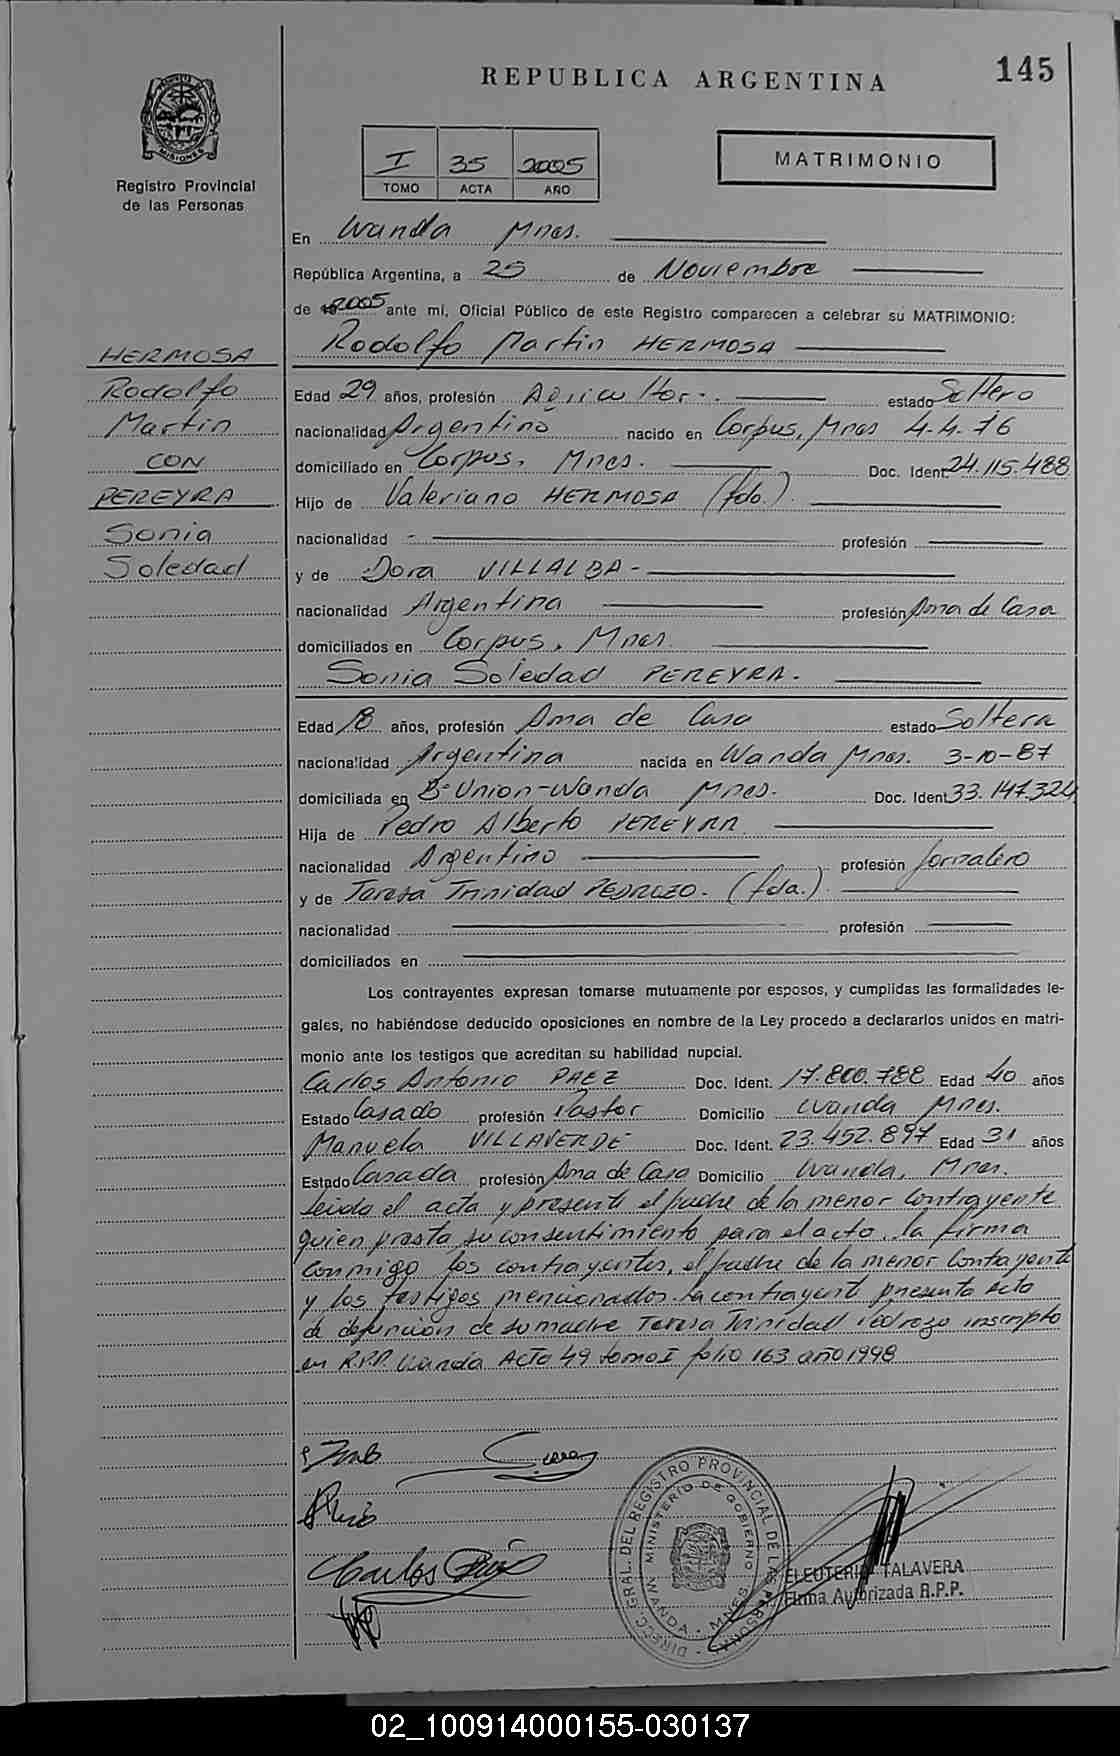 145
REPUBLICA ARGENTINA
MISIONES
Registro Provincial
de las Personas
I 35 2005
TOMO ACTA AÑO
MATRIMONIO
En Wanda Mnes.
República Argentina, a 25 de Noviembre
de 2005 ante mí, Oficial Público de este Registro comparecen a celebrar su MATRIMONIO:
HERMOSA
Rodolfo
Martin
CON
PEREYRA
Sonia
Soledad
Rodolfo Martin HERMOSA
Edad 29 años, profesión Agricultor.. estado Soltero
nacionalidad Argentino nacido en Corpus, Mnes 4-4-76
domiciliado en Corpus, Mnes. Doc. Ident. 24.115.488
Hijo de Valeriano HERMOSA (fdo.).
nacionalidad - profesión
y de Dora VILLALBA-
nacionalidad Argentina profesión Ama de Casa
domiciliados en Corpus, Mnes.
Sonia Soledad PEREYRA.
Edad 18 años, profesión Ama de Casa estado Soltera
nacionalidad Argentina nacida en Wanda Mnes. 3-10-87
domiciliada en B° Union-Wanda Mnes. Doc. Ident 33.147.324
Hija de Pedro Alberto PEREYRA
nacionalidad Argentino profesión Jornalero
y de Teresa Trinidad PEDROZO. (fda.).
nacionalidad profesión
domiciliados en
Los contrayentes expresan tomarse mutuamente por esposos, y cumplidas las formalidades le-
gales, no habiéndose deducido oposiciones en nombre de la Ley procedo a declararlos unidos en matri-
monio ante los testigos que acreditan su habilidad nupcial.
Carlos Antonio PAEZ Doc. Ident. 17.800.788 Edad 40 años
Estado Casado profesión Pastor Domicilio Wanda Mnes.
Manuela VILLAVERDE Doc. Ident. 23.452.897 Edad 31 años
Estado Casada profesión Ama de Casa Domicilio Wanda, Mnes.
Leida el acta y presente el padre de la menor contrayente
quien presta su consentimiento para el acto, la firma
conmigo los contrayentes, el padre de la menor contrayente
y los testigos mencionados. La contrayente presenta acta
de defunción de su madre Teresa Trinidad Pedrozo inscripto
en R.P.P. Wanda Acta 49 tomo I folio 163 año 1998
Carlos
DIRECC. GRAL. DEL REGISTRO PROVINCIAL DE LAS PERSONAS
MINISTERIO DE GOBIERNO
WANDA - MNES
ELEUTERIO TALAVERA
Firma Autorizada R.P.P.
02_100914000155-030137